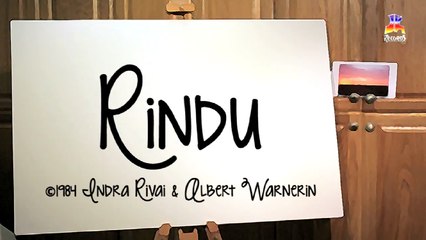 RECORDS
Rindu
©1984 Indra Rivai & Albert Warnerin